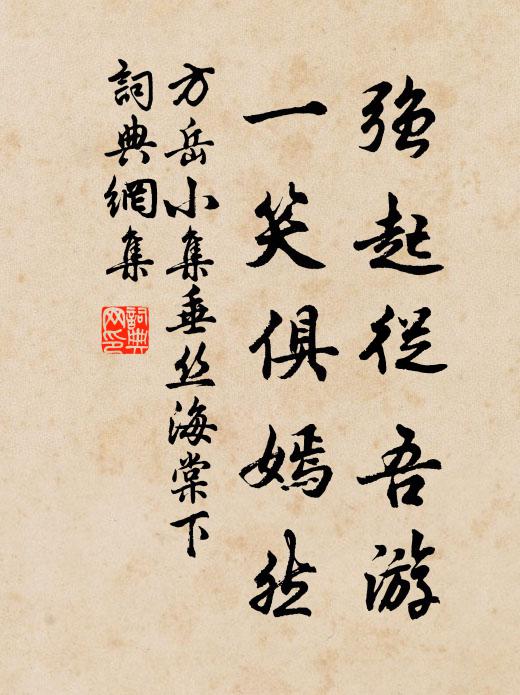 強起從吾游
一笑俱嫣然
方岳小集垂丝海棠下
詞典網集
詞典网印